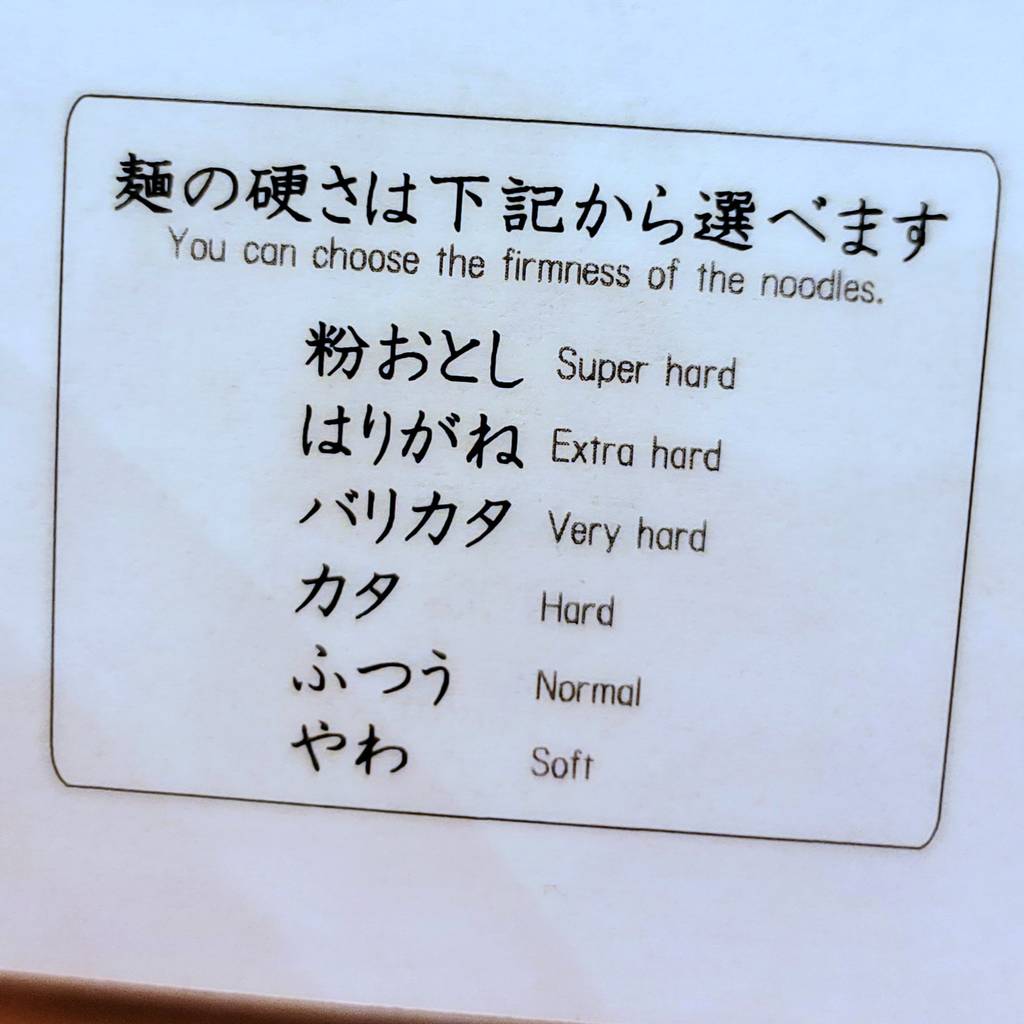 麺の硬さは下記から選べます
You can choose the firmness of the noodles.
粉おとし Super hard
はりがね Extra hard
バリカタ Very hard
カタ Hard
ふつう Normal
やわ Soft